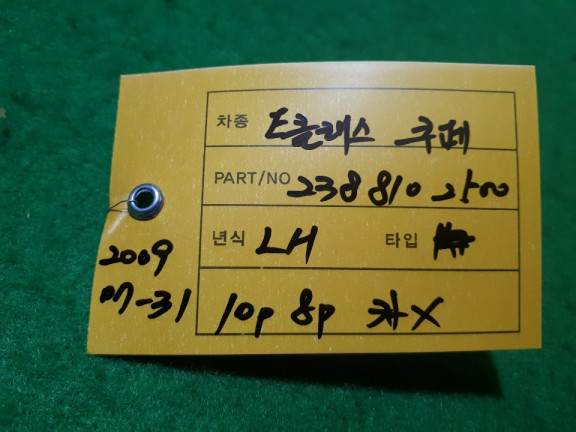 차종 E클래스 쿠페
PART/NO 238 810 2500
년식 LH 타입
2009
07-31
10p 8p 카X